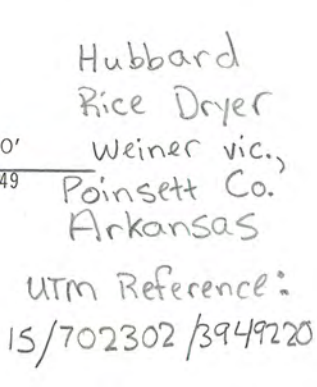 Hubbard
Rice Dryer
0'
Weiner vic.,
49
Poinsett Co.
Arkansas
UTM Reference:
15/702302/3949220